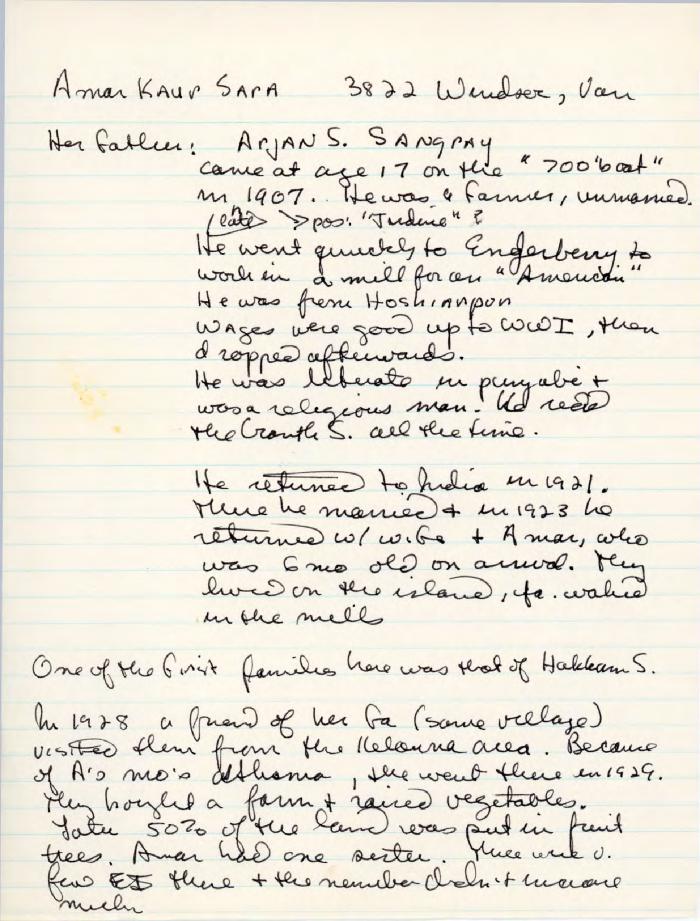 Amar Kaur Sara 3822 Windsor, Van
Her father: Arjan S. Sangray
came at age 17 on the "700 boat"
in 1907. He was a farmer, unmarried.
late pos. ?
He went quickly to Enderberry to
work in a mill for an "American"
He was from Hoshiarpur
Wages were good up to WWI, then
dropped afterwards.
He was literate in punjabi +
was a religious man. He read
the Granth S. all the time.
He returned to India in 1921.
There he married + in 1923 he
returned w/ wife + Amar, who
was 6 mo old on arrival. They
lived on the island, fa. worked
in the mills
One of the first families here was that of Hakkam S.
In 1928 a friend of her fa (same village)
visited them from the Kelowna area. Because
of A's mo's asthma, they went there in 1929.
They bought a farm + raised vegetables.
Later 50% of the land was put in fruit
trees. Amar had one sister. There were v.
few EIs there + the number didn't increase
much